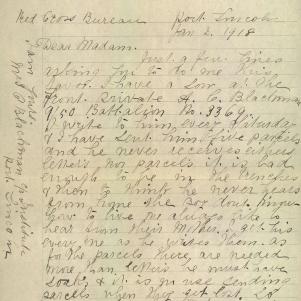 Red Cross Bureau Port Lincoln
Jan 2. 1918
Dear Madam.
Just a few lines
asking you to do me this
favor. I have a Son at the
Front Private A. C. Blachman
9/50 Battalion No. 3369.
I write to him every Saturday
& I have sent him five parcels
and he never receives either
letters nor parcels it is bad
enough to be in the trenches
& then to think he never hears
from home the poor dont know
how to live we always like to
hear from their Mother. I get his
every one as he writes them. as
for the parcels there are needed
more than letters he must have
& it is no use sending
parcels when they get lost. If
I am Yours
Mrs P Blachman
Port Lincoln